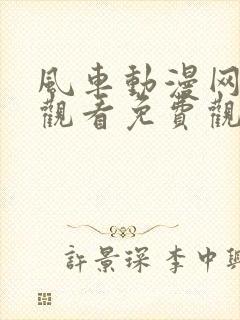 風車動漫网
觀看免費觀
許景琛 李中興